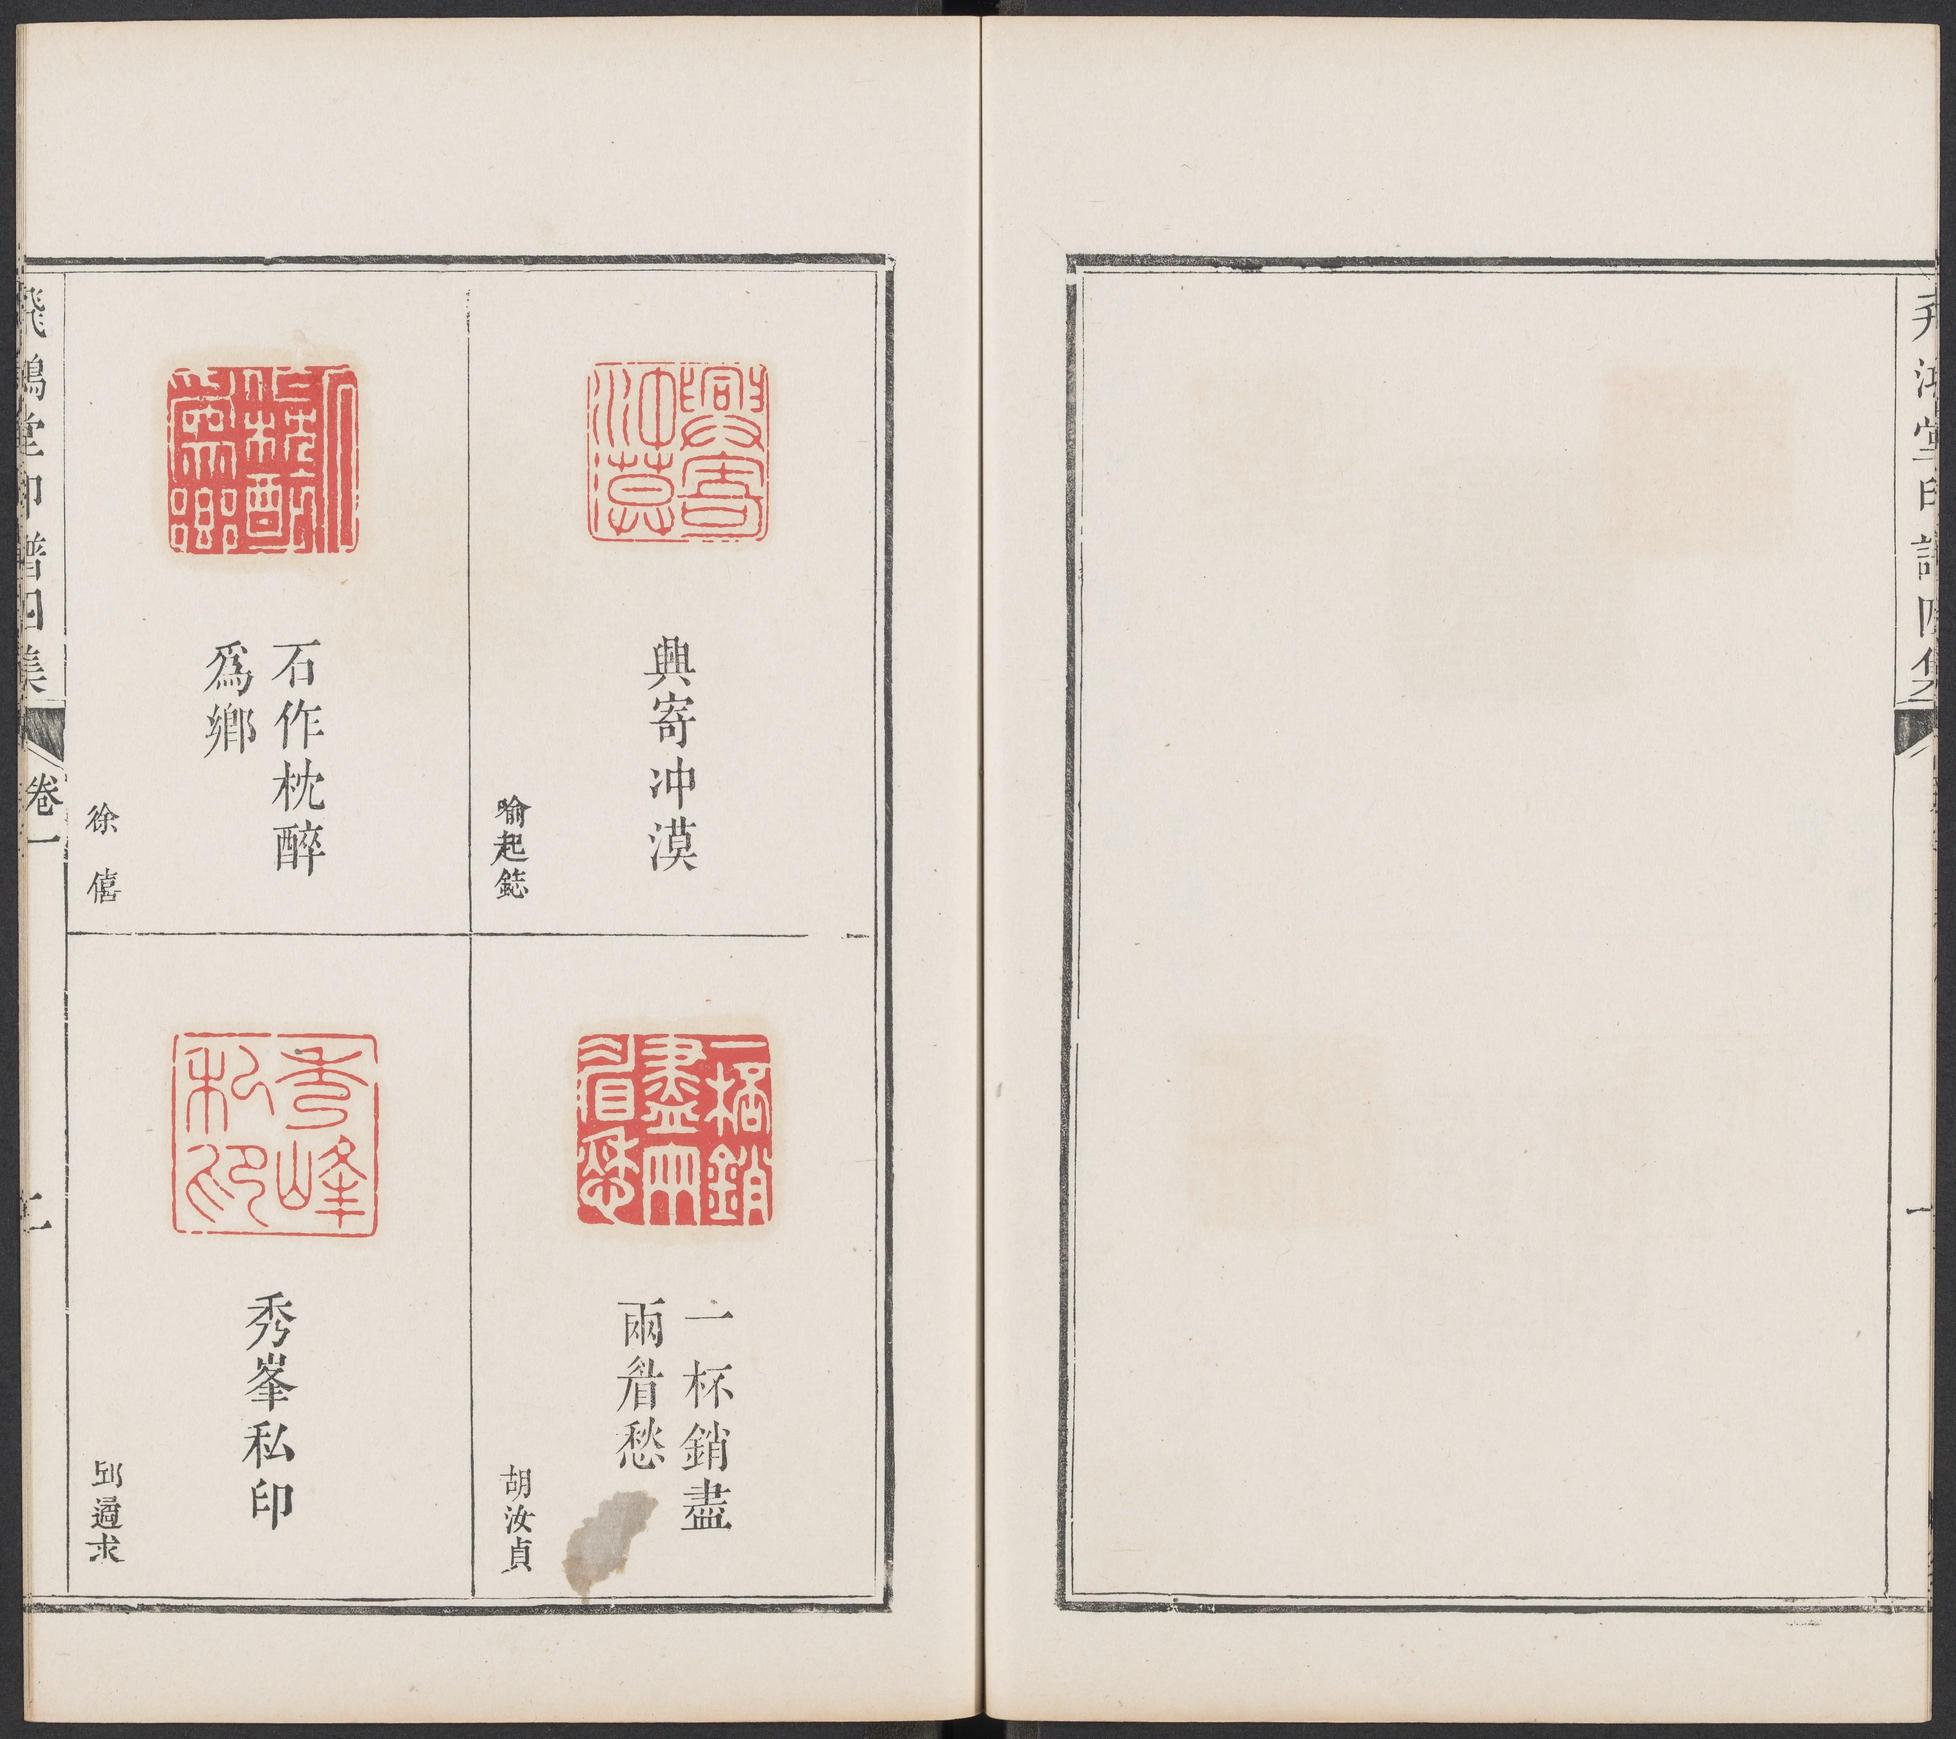 飛鴻堂印譜四集
興寄冲漠
喻起鋕
一杯銷盡
兩眉愁
胡汝貞
石作枕醉
爲鄉
徐僖
秀峯私印
邱
求
飛鴻堂印譜四集
卷一
二